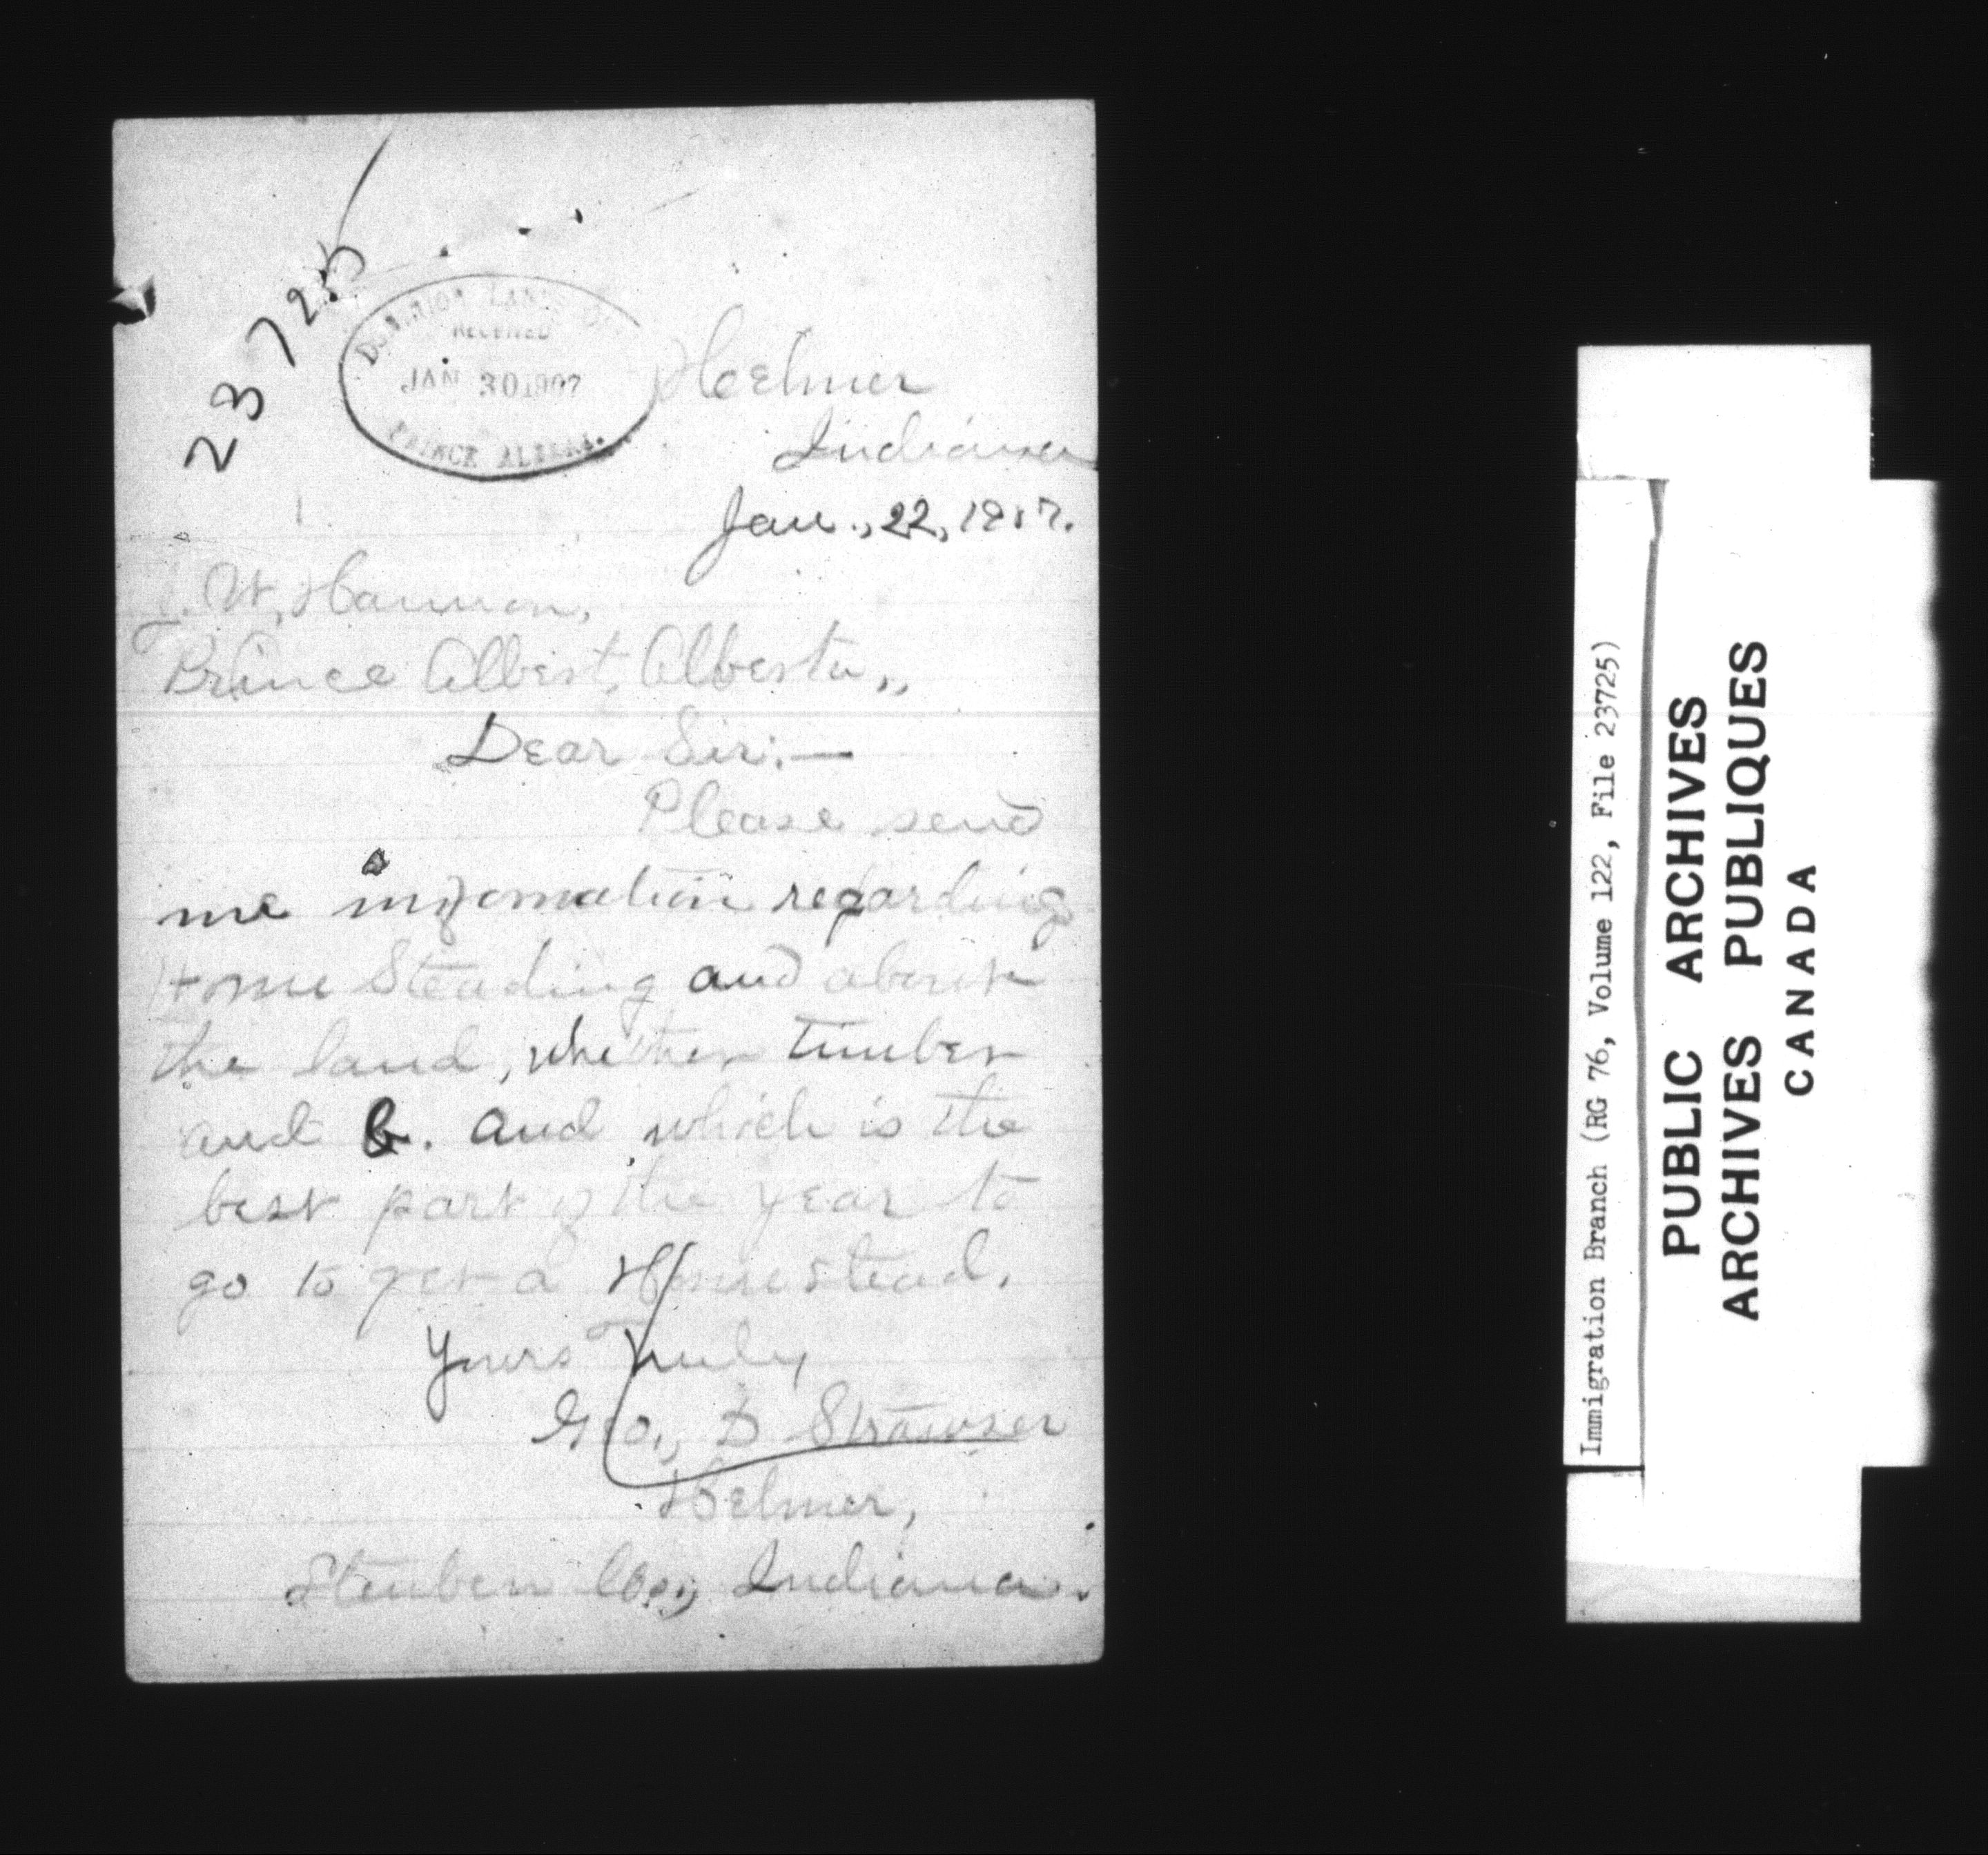 23725
DOMINION LANDS
RECEIVED
JAN 30 1907
PRINCE ALBERT.
Helmer
Indiana
Jan., 22, 1907.
J. W. Hannon,
Prince Albert, Alberta,,
Dear Sir:—
Please send
me infomation regarding
Home Steading and about
the land, whether timber
and &. and which is the
best part of the year to
go to get a Homestead.
Yours Truly
Geo., D Strawser
Helmer,
Steuben Co., Indiana.
Immigration Branch (RG 76, Volume 122, File 23725)
PUBLIC ARCHIVES
ARCHIVES PUBLIQUES
CANADA